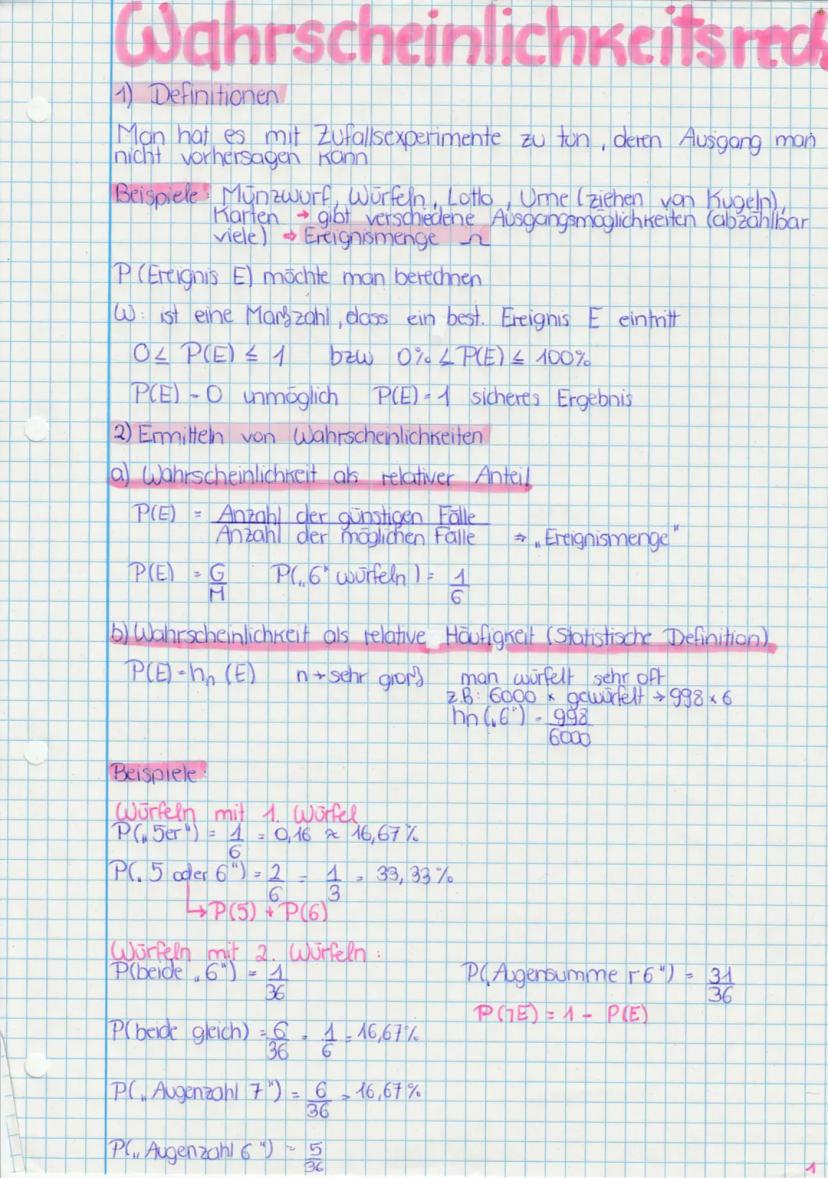 Wahrscheinlichkeitsrech
1) Definitionen
Man hat es mit Zufallsexperimente zu tun, deren Ausgang man
nicht vorhersagen kann
Beispiele: Münzwurf, Würfeln, Lotto, Urne (ziehen von Kugeln),
Karten → gibt verschiedene Ausgangsmöglichkeiten (abzählbar
viele) ⇒ Ereignismenge Ω
P (Ereignis E) möchte man berechnen
W: ist eine Maßzahl, dass ein best. Ereignis E eintritt
0 ≤ P(E) ≤ 1 bzw 0% ≤ P(E) ≤ 100%
P(E) = 0 unmöglich P(E) = 1 sicheres Ergebnis
2) Ermitteln von Wahrscheinlichkeiten
a) Wahrscheinlichkeit als relativer Anteil
P(E) = Anzahl der günstigen Fälle
Anzahl der möglichen Fälle ⇒ „Ereignismenge"
P(E) = G/M P(„6" würfeln) = 1/6
b) Wahrscheinlichkeit als relative Häufigkeit (Statistische Definition)
P(E) = hn (E) n → sehr groß man würfelt sehr oft
z.B: 6000 x gewürfelt → 998 x 6
hn(„6") = 998/6000
Beispiele:
Würfeln mit 1. Würfel
P(„5er") = 1/6 = 0,16 ≈ 16,67%
P(„5 oder 6") = 2/6 = 1/3 = 33,33%
↳ P(5) + P(6)
Würfeln mit 2. Würfeln:
P(beide „6") = 1/36 P(„Augensumme ¬6") = 31/36
P(¬E) = 1 - P(E)
P(beide gleich) = 6/36 = 1/6 = 16,67%
P(„Augenzahl 7") = 6/36 = 16,67%
P(„Augenzahl 6") = 5/36
1